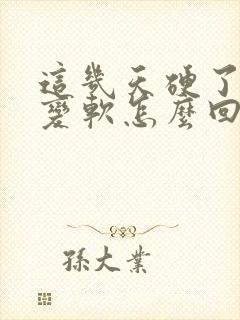 這幾天硬了
變軟怎麼回
孫大業